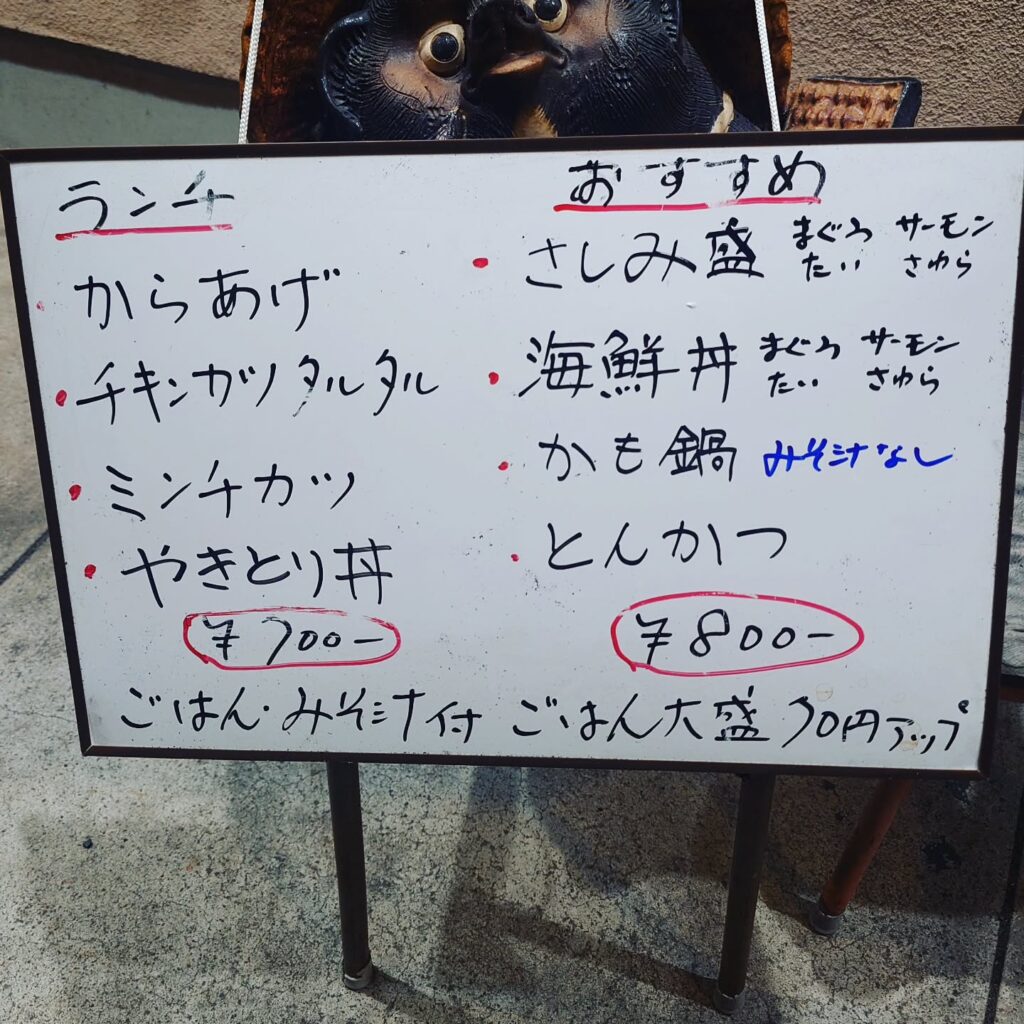 ランチ
からあげ
・チキンカツタルタル
・ミンチカツ
・やきとり丼
¥700-
おすすめ
・さしみ盛 まぐろ サーモン
たい さわら
・海鮮丼 まぐろ サーモン
たい さわら
・かも鍋 みそ汁なし
・とんかつ
¥800-
ごはん・みそ汁付 ごはん大盛 70円アップ